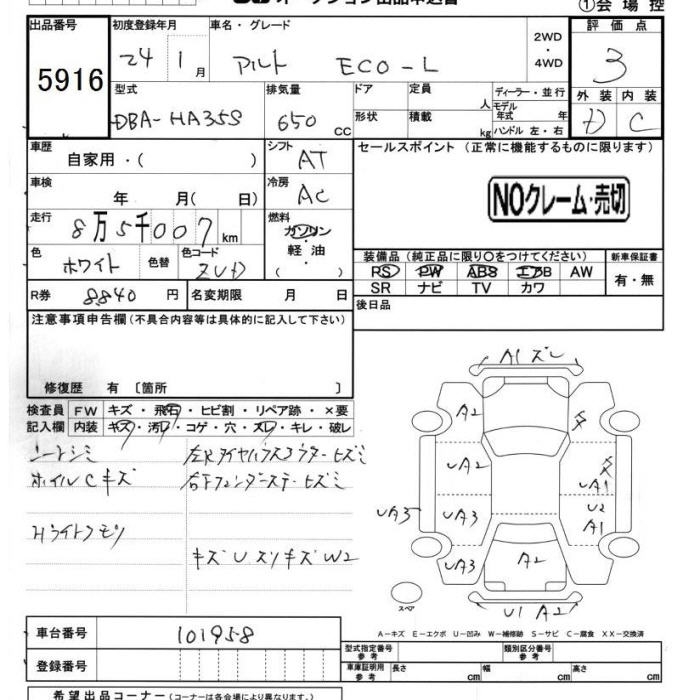 オークション出品申込書
①会場控
出品番号
5916
初度登録年月
24 1月
車名・グレード
アルト ECO-L
2WD
・
4WD
評価点
3
外装 内装
D C
型式
DBA-HA35S
排気量
650 cc
ドア
形状
定員
人
積載
kg
ディーラー・並行
モデル年式 年
ハンドル 左・右
車歴
自家用・( )
シフト
AT
車検
年 月( 日)
冷房
AC
走行
8万5千007km
燃料
ガソリン
軽油
( ・ )
色
ホワイト
色替
色コード
ZVD
R券 8840 円
名変期限 月 日
セールスポイント (正常に機能するものに限ります)
NOクレーム・売切
装備品(純正品に限り○をつけてください)
PS PW ABS エアB AW
SR ナビ TV カワ
新車保証書
有・無
後日品
注意事項申告欄(不具合内容等は具体的に記入して下さい)
修復歴 有 〔箇所 〕
検査員 FW キズ・飛石・ヒビ割・リペア跡・×要
記入欄 内装 キズ・汚レ・コゲ・穴・スレ・キレ・破レ
シートシミ
ホイルCキズ
Hライトクモリ
キズUスリキズW2
A1ズレ
A2
UA2
UA3 UA3
UA3
UA1
U2
A1
A2
U1 A2
スペア
A-キズ E-エクボ U-凹み W-補修跡 S-サビ C-腐食 XX-交換済
車台番号 101958
登録番号
型式指定番号 参考
類別区分番号 参考
車庫証明用 参考 長さ cm 幅 cm 高さ cm
希望出品コーナー(コーナーは各会場により異なります。)